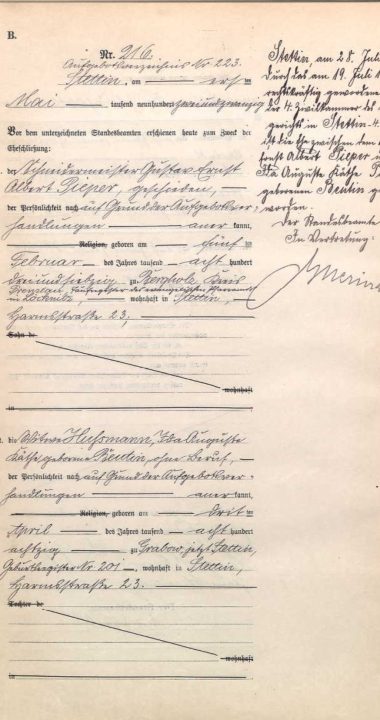 B.
Nr. 216.
Aufgebotsverzeichnis Nr. 223.
Stettin, am erst
en
Mai tausend neunhundert zweiundzwanzig
Vor dem unterzeichneten Standesbeamten erschienen heute zum Zweck der
Eheschließung:
der Schneidermeister Gustav Ernst
Albert Pieper, geschieden,
der Persönlichkeit nach auf Grund der Aufgebotsver-
handlungen aner kannt,
Religion, geboren am fünf
Februar des Jahres tausend acht hundert
dreiundsiebzig zu Bergholz Kreis
Prenzlau, Taufregister des evangelischen Pfarramts
in Löcknitz, wohnhaft in Stettin,
Harmsstraße 23;
Sohn de
wohnhaft
in
die Witwe Hussmann, Ida Auguste
Käthe, geborene Beutin, ohne Beruf,
der Persönlichkeit nach auf Grund der Aufgebotsver-
handlungen aner kannt,
Religion, geboren am dritt
April des Jahres tausend acht hundert
achtzig zu Grabow, jetzt Stettin,
Geburtsregister Nr 201, wohnhaft in Stettin,
Harmsstraße 23.
Tochter de
wohnhaft
in
Stettin, am 28. Juli
Durch das am 19. Juli 1
rechtskräftig gewordene
der 4. Zivilkammer des
gerichts in Stettin
ist die Ehe zwischen dem
Ernst Albert Pieper u
Ida Auguste Käthe
geborenen Beutin g
worden.
Der Standesbeamte
In Vertretung: